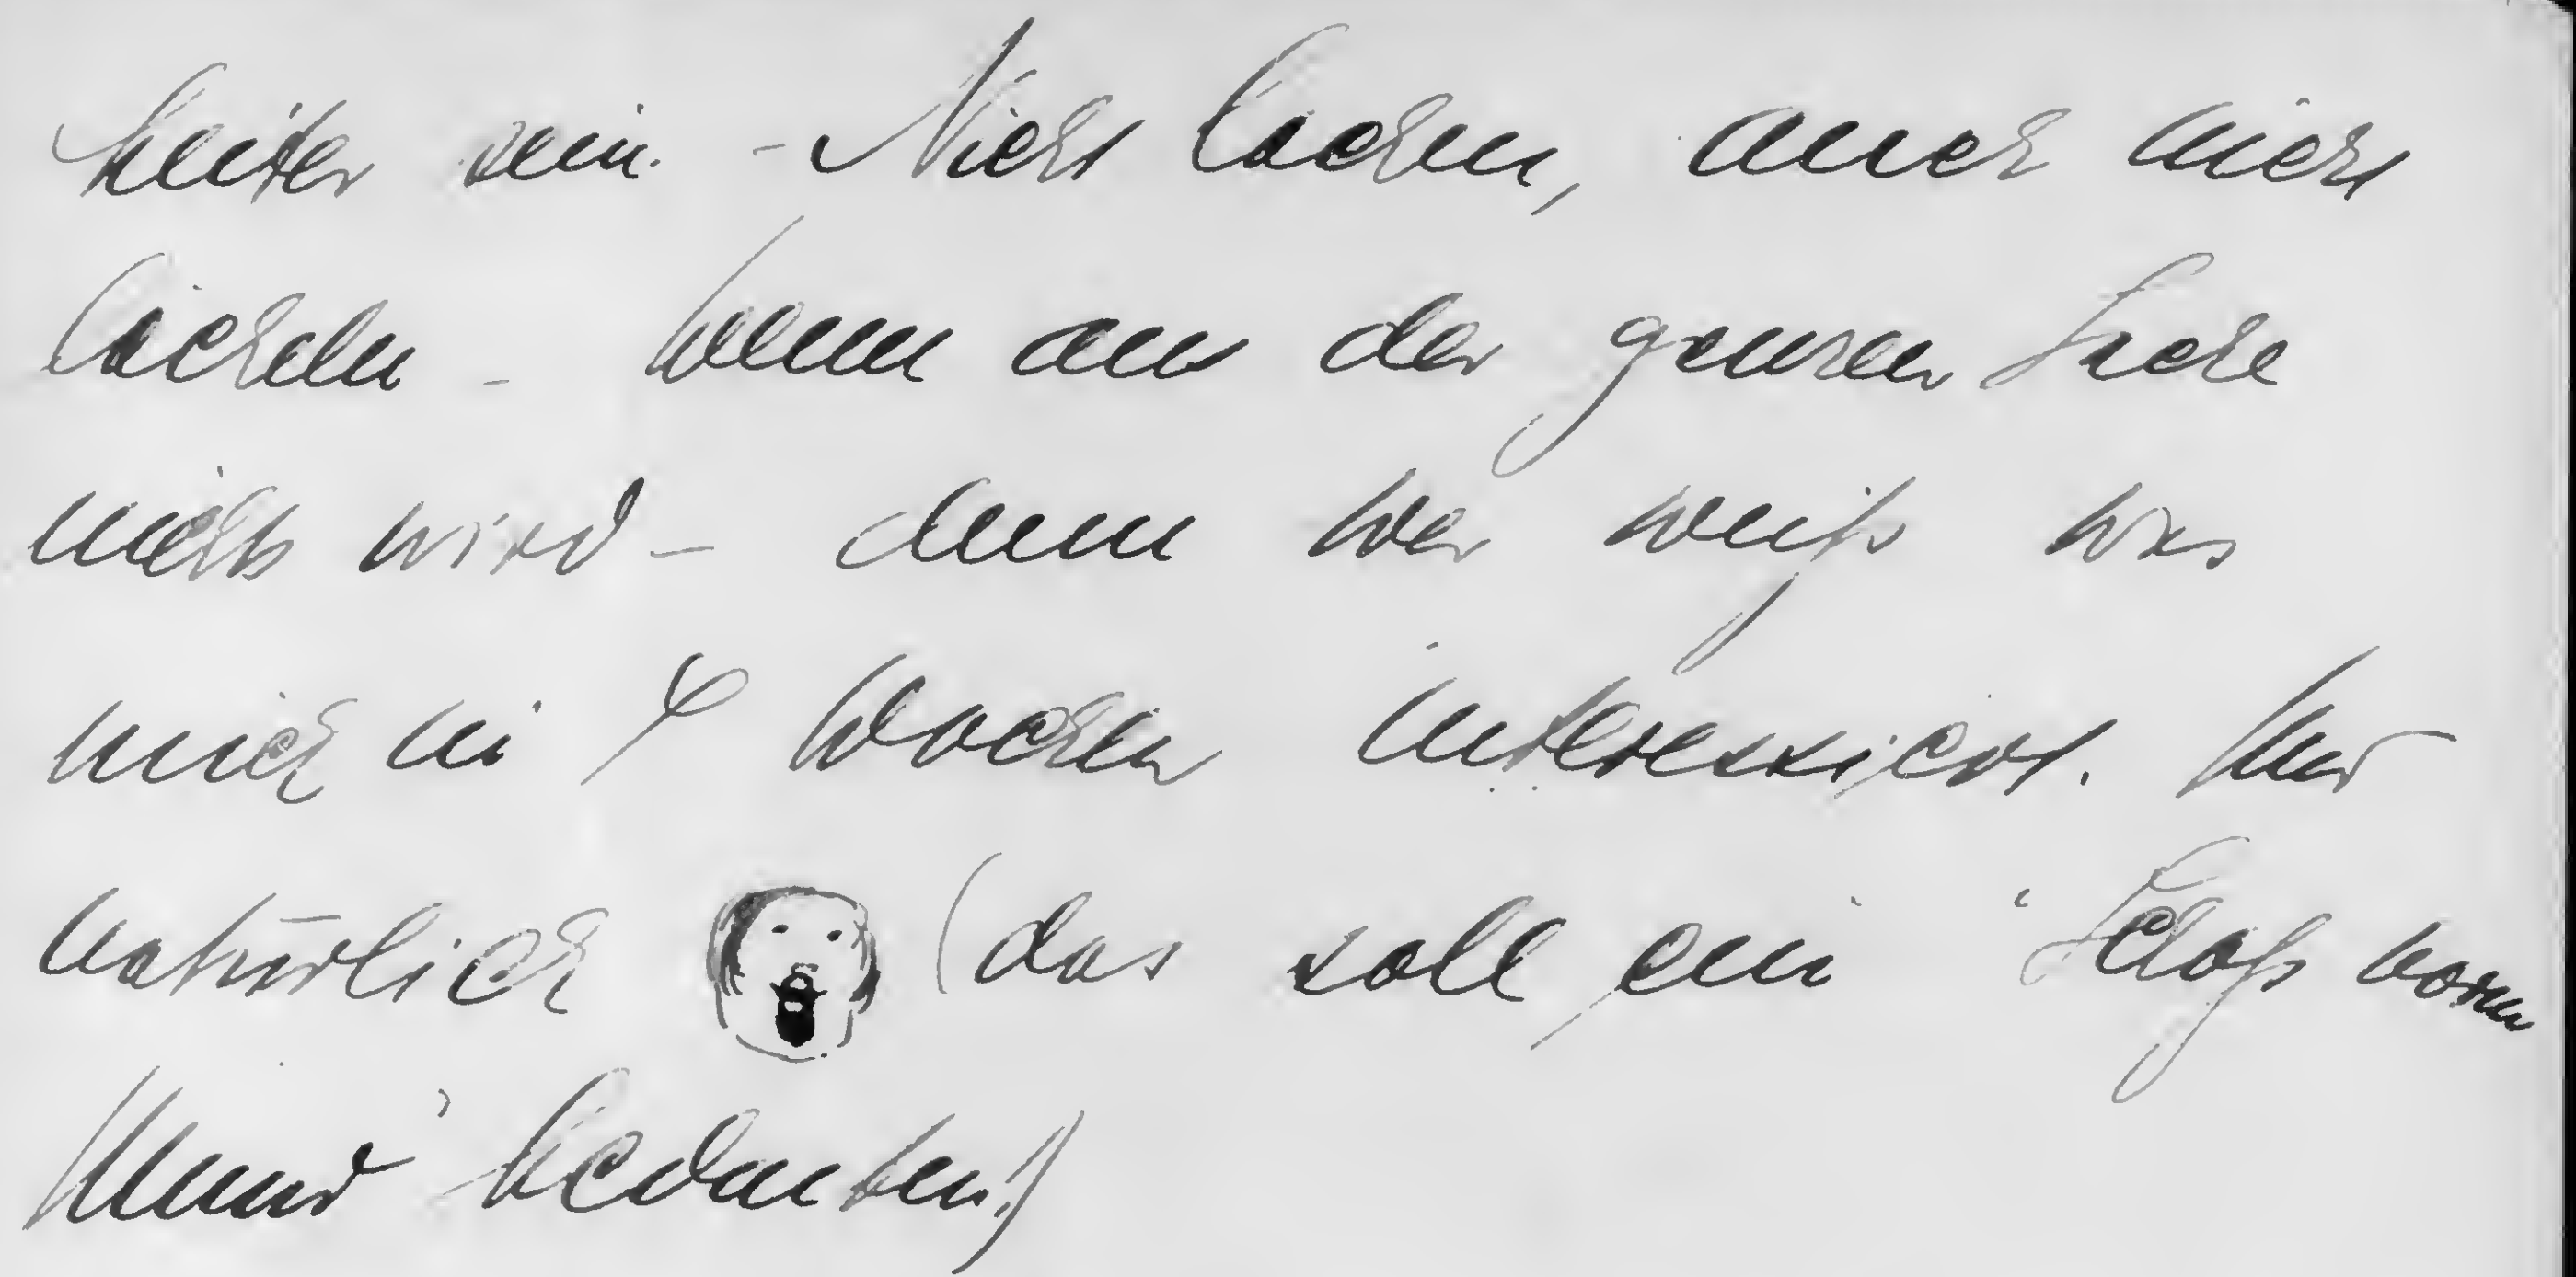 heiter sein. - Nicht lachen, auch nicht
lächeln - Wenn aus der ganzen Sache
nichts wird - denn wer weiß was
mich in 4 Wochen interessiert. Und
natürlich (das soll ein "Schloß vorm
Mund" bedeuten!)